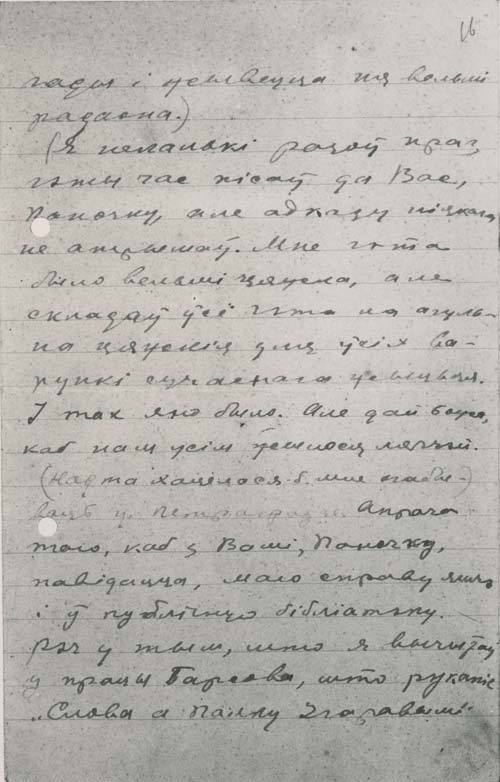 16
гады і жывецца ня вельмі
радасна.)
(Я некалькі разоў праз
гэты час пісаў да Вас,
Паночку, але адказу ніякага
не атрымаў. Мне гэта
было вельмі цяжка, але
складаў ўсё гэта на агуль-
на цяжкія для ўсіх ва-
рункі сучаснага жыцьця.
І так яно было. Але дай божа,
каб нам усім жылося лягчэй.
(Надта хацелася б мне пабы-)
ваць у Петраградзе. Апрача
таго, каб з Вамі, Паночку,
павідацца, маю справу яшчэ
і ў публічную бібліатэку.
Рэч у тым, што я вычытаў
у працы Барсова, што рукапіс
„Слова а Палку Ігаравым"